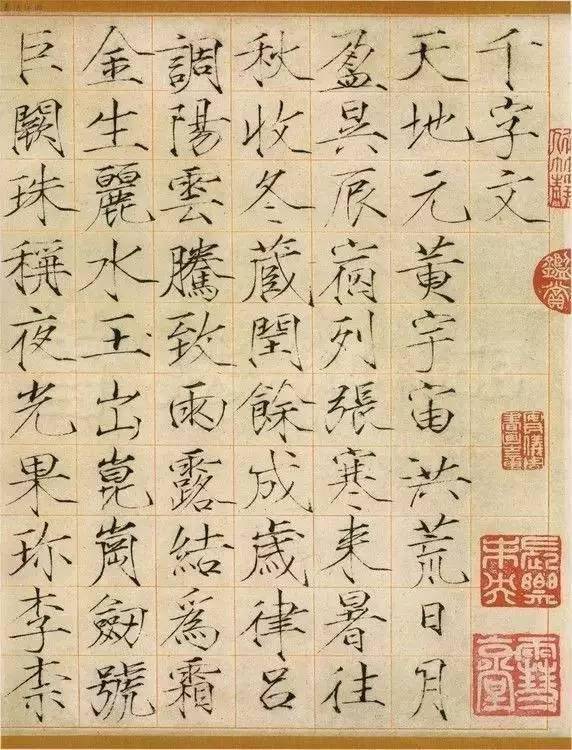 千字文
天地元黄宇宙洪荒日月
盈昃辰宿列張寒来暑往
秋收冬蔵閏餘成歳律吕
調陽雲騰致雨露結爲霜
金生麗水玉出崑崗劒號
巨闕珠稱夜光果珎李柰
鑑賞